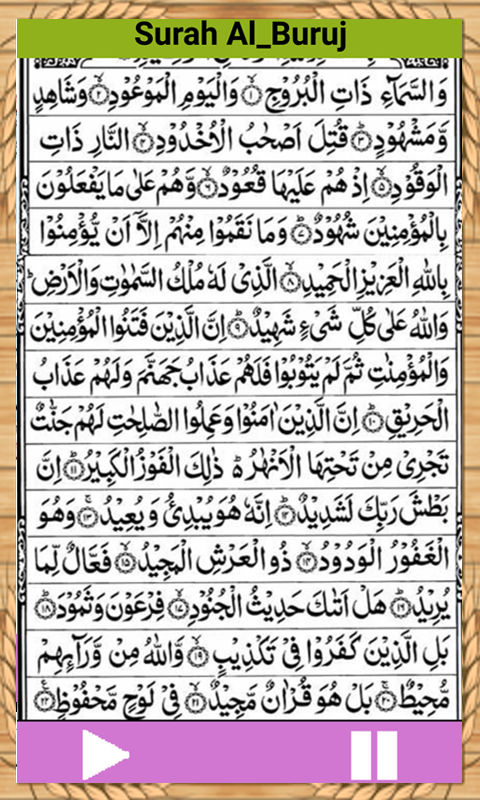 Surah Al_Buruj
وَالسَّمَآءِ ذَاتِ الْبُرُوْجِ ۙ﴿۱﴾ وَالْيَوْمِ الْمَوْعُوْدِ ۙ﴿۲﴾ وَشَاهِدٍ
وَّمَشْهُوْدٍ ؕ﴿۳﴾ قُتِلَ اَصْحٰبُ الْاُخْدُوْدِ ۙ﴿۴﴾ النَّارِ ذَاتِ
الْوَقُوْدِ ۙ﴿۵﴾ اِذْ هُمْ عَلَيْهَا قُعُوْدٌ ۙ﴿۶﴾ وَّهُمْ عَلٰى مَا يَفْعَلُوْنَ
بِالْمُؤْمِنِيْنَ شُهُوْدٌ ؕ﴿۷﴾ وَمَا نَقَمُوْا مِنْهُمْ اِلَّاۤ اَنْ يُّؤْمِنُوْا
بِاللّٰهِ الْعَزِيْزِ الْحَمِيْدِ ۙ﴿۸﴾ الَّذِيْ لَهٗ مُلْكُ السَّمٰوٰتِ وَالْاَرْضِ ؕ
وَاللّٰهُ عَلٰى كُلِّ شَيْءٍ شَهِيْدٌ ؕ﴿۹﴾ اِنَّ الَّذِيْنَ فَتَنُوا الْمُؤْمِنِيْنَ
وَالْمُؤْمِنٰتِ ثُمَّ لَمْ يَتُوْبُوْا فَلَهُمْ عَذَابُ جَهَنَّمَ وَلَهُمْ عَذَابُ
الْحَرِيْقِ ؕ﴿۱۰﴾ اِنَّ الَّذِيْنَ اٰمَنُوْا وَعَمِلُوا الصّٰلِحٰتِ لَهُمْ جَنّٰتٌ
تَجْرِيْ مِنْ تَحْتِهَا الْاَنْهٰرُ ؕ۬ ذٰلِكَ الْفَوْزُ الْكَبِيْرُ ؕ﴿۱۱﴾ اِنَّ
بَطْشَ رَبِّكَ لَشَدِيْدٌ ؕ﴿۱۲﴾ اِنَّهٗ هُوَ يُبْدِئُ وَيُعِيْدُ ۚ﴿۱۳﴾ وَهُوَ
الْغَفُوْرُ الْوَدُوْدُ ۙ﴿۱۴﴾ ذُو الْعَرْشِ الْمَجِيْدُ ۙ﴿۱۵﴾ فَعَّالٌ لِّمَا
يُرِيْدُ ؕ﴿۱۶﴾ هَلْ اَتٰىكَ حَدِيْثُ الْجُنُوْدِ ۙ﴿۱۷﴾ فِرْعَوْنَ وَثَمُوْدَ ؕ﴿۱۸﴾
بَلِ الَّذِيْنَ كَفَرُوْا فِيْ تَكْذِيْبٍ ۙ﴿۱۹﴾ وَّاللّٰهُ مِنْ وَّرَآئِهِمْ
مُّحِيْطٌ ۚ﴿۲۰﴾ بَلْ هُوَ قُرْاٰنٌ مَّجِيْدٌ ۙ﴿۲۱﴾ فِيْ لَوْحٍ مَّحْفُوْظٍ ﴿۲۲﴾